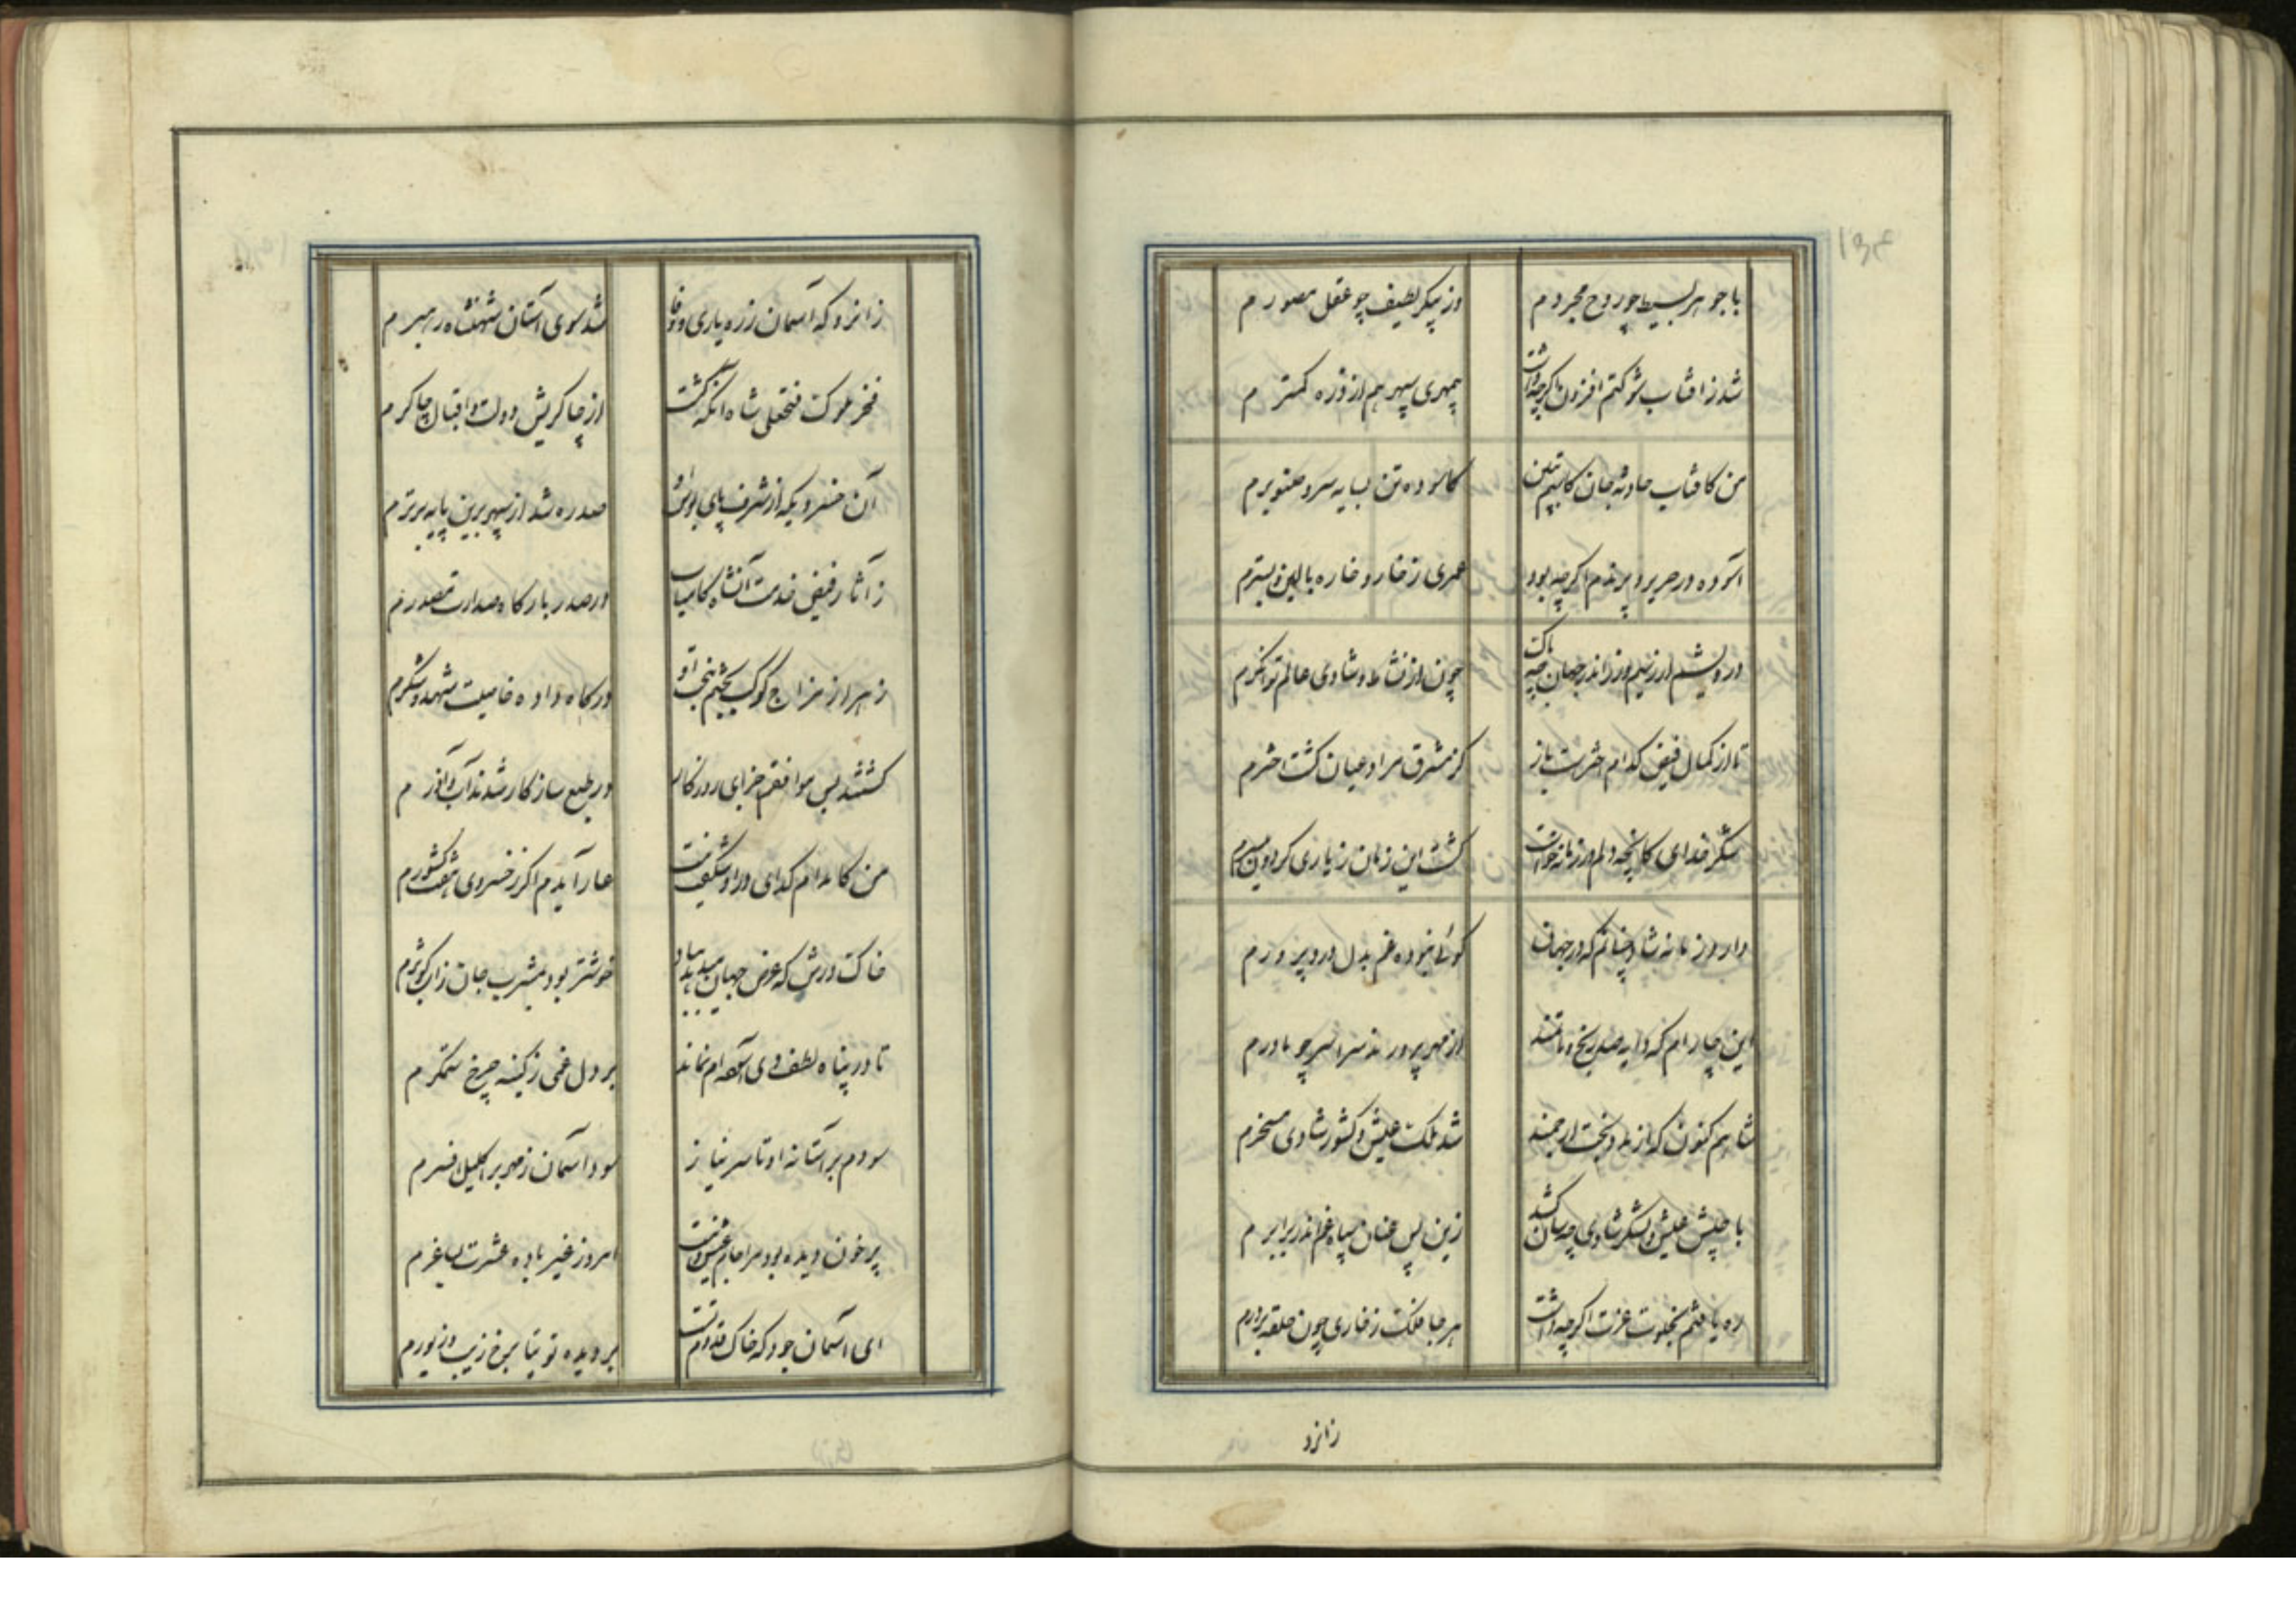 با جوهر بسیط چو روح مجردم
وز پیکر لطیف چو عقل مصورم
شد ز افتاب شوکتم افزون اکر چه داشت
مهری سپهر هم از ذره کمترم
من کافتاب حادثه جان کاهیم ببین
کاسوده تن بسایه سرو صنوبرم
آسوده در حریر و پرندم اکر چه بود
عمری ز خار و خاره بالین و بسترم
درویشم ار ز سیم و زر اندر جهان چه باک
چون از نشاط و شادی عالم توانکرم
تا از کمال فیض کدام اخترست باز
کز مشرق مراد عیان کشت اخترم
شکر خدای کانچه دلم در زمانه خواست
کشت این زمان ز یاری کردون میسرم
دارد زمانه شاد چنانم که در جهان
کوئی نبوده غم بدل درد پرورم
این چار ام که دایه صد رنج و نا خوشند
از مهر پرورند سراسر چو مادرم
شاهم کنون که از مدد بخت ارجمند
شد ملک عیش و کشور شادی مسخرم
با جیش عیش و لشکر شادی چه سان کشد
زین پس عنان سپاه غم اندر برابرم
ره یافتم بخلوت عزت اکر چه داشت
هر جا فلک ز خاری چون حلقه بر درم
زانرو
زانرو که آسمان ز ره یاری و وفا
شد سوی آستان شهنشاه رهبرم
فخر ملوک فتحعلی شاه آنکه کشت
از چاکریش دولت و اقبال چاکرم
آن خسرویکه از شرف پای بوس او
صدره شد از سپهر برین پایه برترم
ز آثار فیض خدمت آنشاه کامیاب
در صدر بارکاه صدارت مصدرم
زهر از مزاج کوکب بختم بخب او
درکاه داده خاصیت شهد و شکرم
کشتند بس موافقم اجزای روزکار
در طبع سازکار شدند آب و آذرم
من کامدم کدای در او شکفت نیست
عار آیدم اکر ز خسروی هفت کشورم
خاک درش که عرض جهان میدهد بباد
خوشتر بود بمشرب جان ز آب کوثرم
تا در پناه لطف وی آسوده ام نماند
بر دل غمی ز کینه چرخ ستمکرم
سودم بر آستانه او تا سر نیاز
سود آسمان ز مهر بر اکلیل افسرم
پر خون دیده بود مرا جام عیش و نیست
امروز غیر باده عشرت بساغرم
ای آسمان جود که خاک قدوم تست
بر دیده توتیا برخ زیب و زیورم